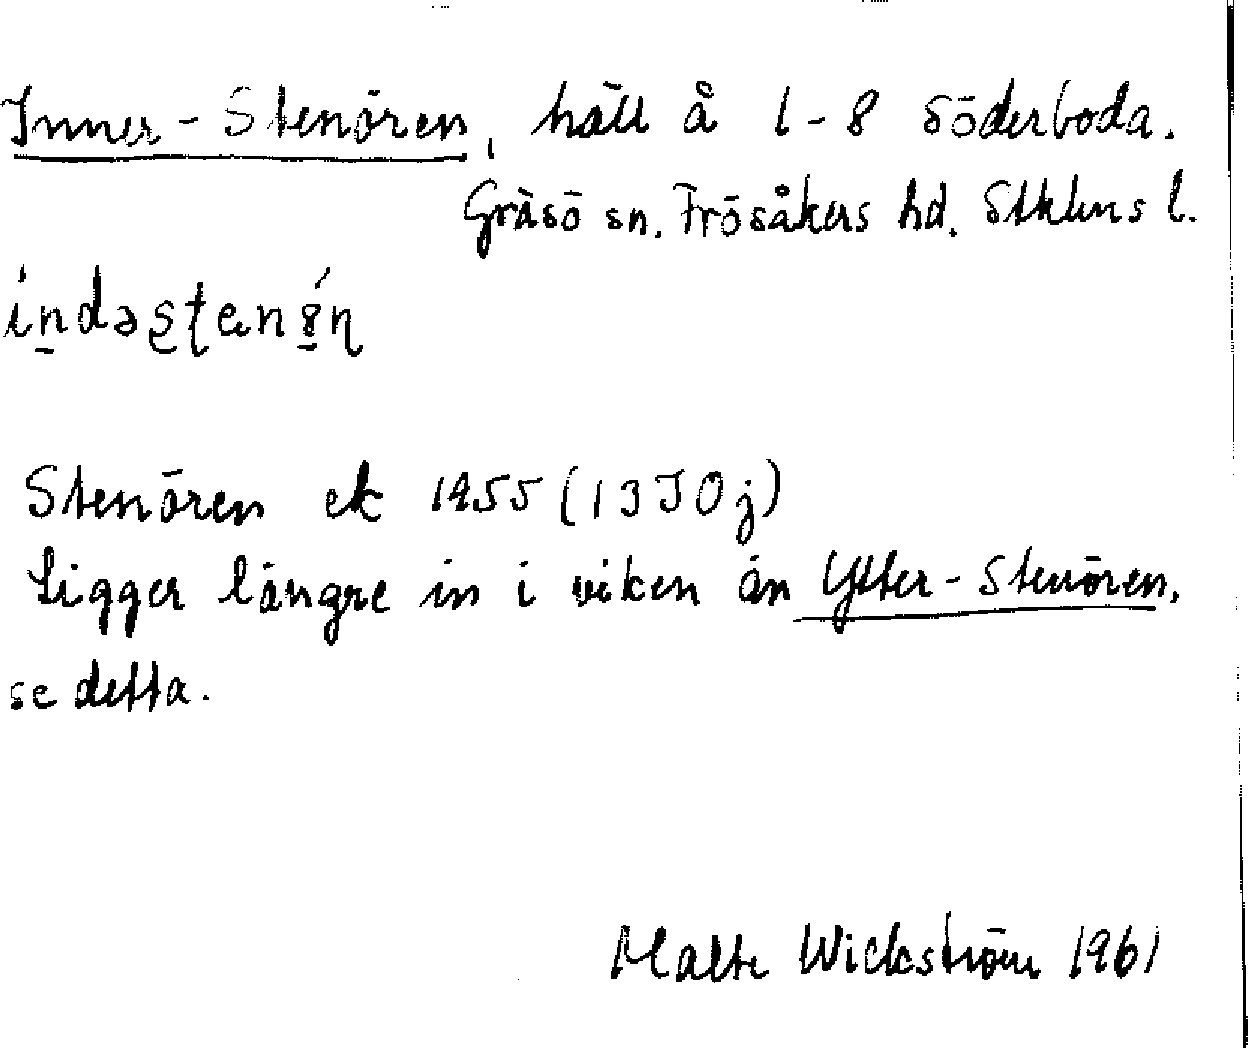 Inner-Stenören, häll å 1-8 Söderboda.
Gräsö sn. Frösåkers hd. Sthlms l.
indəstenǿn
Stenören ek 1955 (13J0j)
Ligger längre in i viken än Ytter-Stenören,
se detta.
Malte Wickström 1961